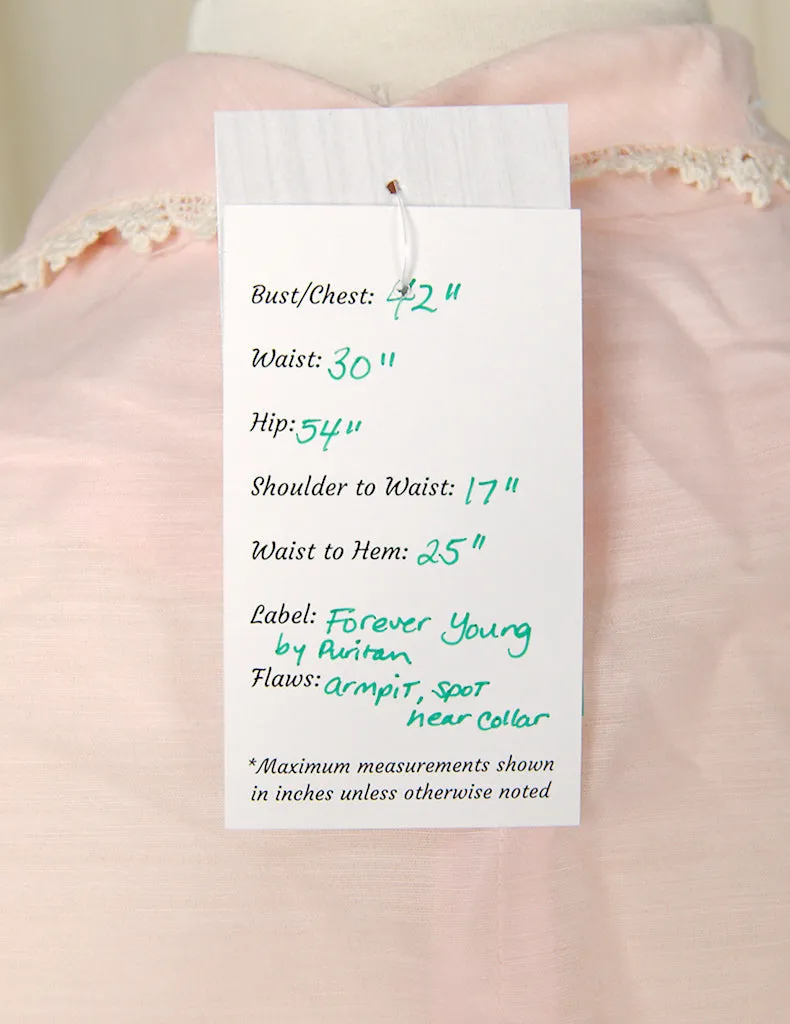 Bust/Chest: 42"
Waist: 30"
Hip: 54"
Shoulder to Waist: 17"
Waist to Hem: 25"
Label: Forever Young
by Puritan
Flaws: armpit, spot
near collar
*Maximum measurements shown
in inches unless otherwise noted